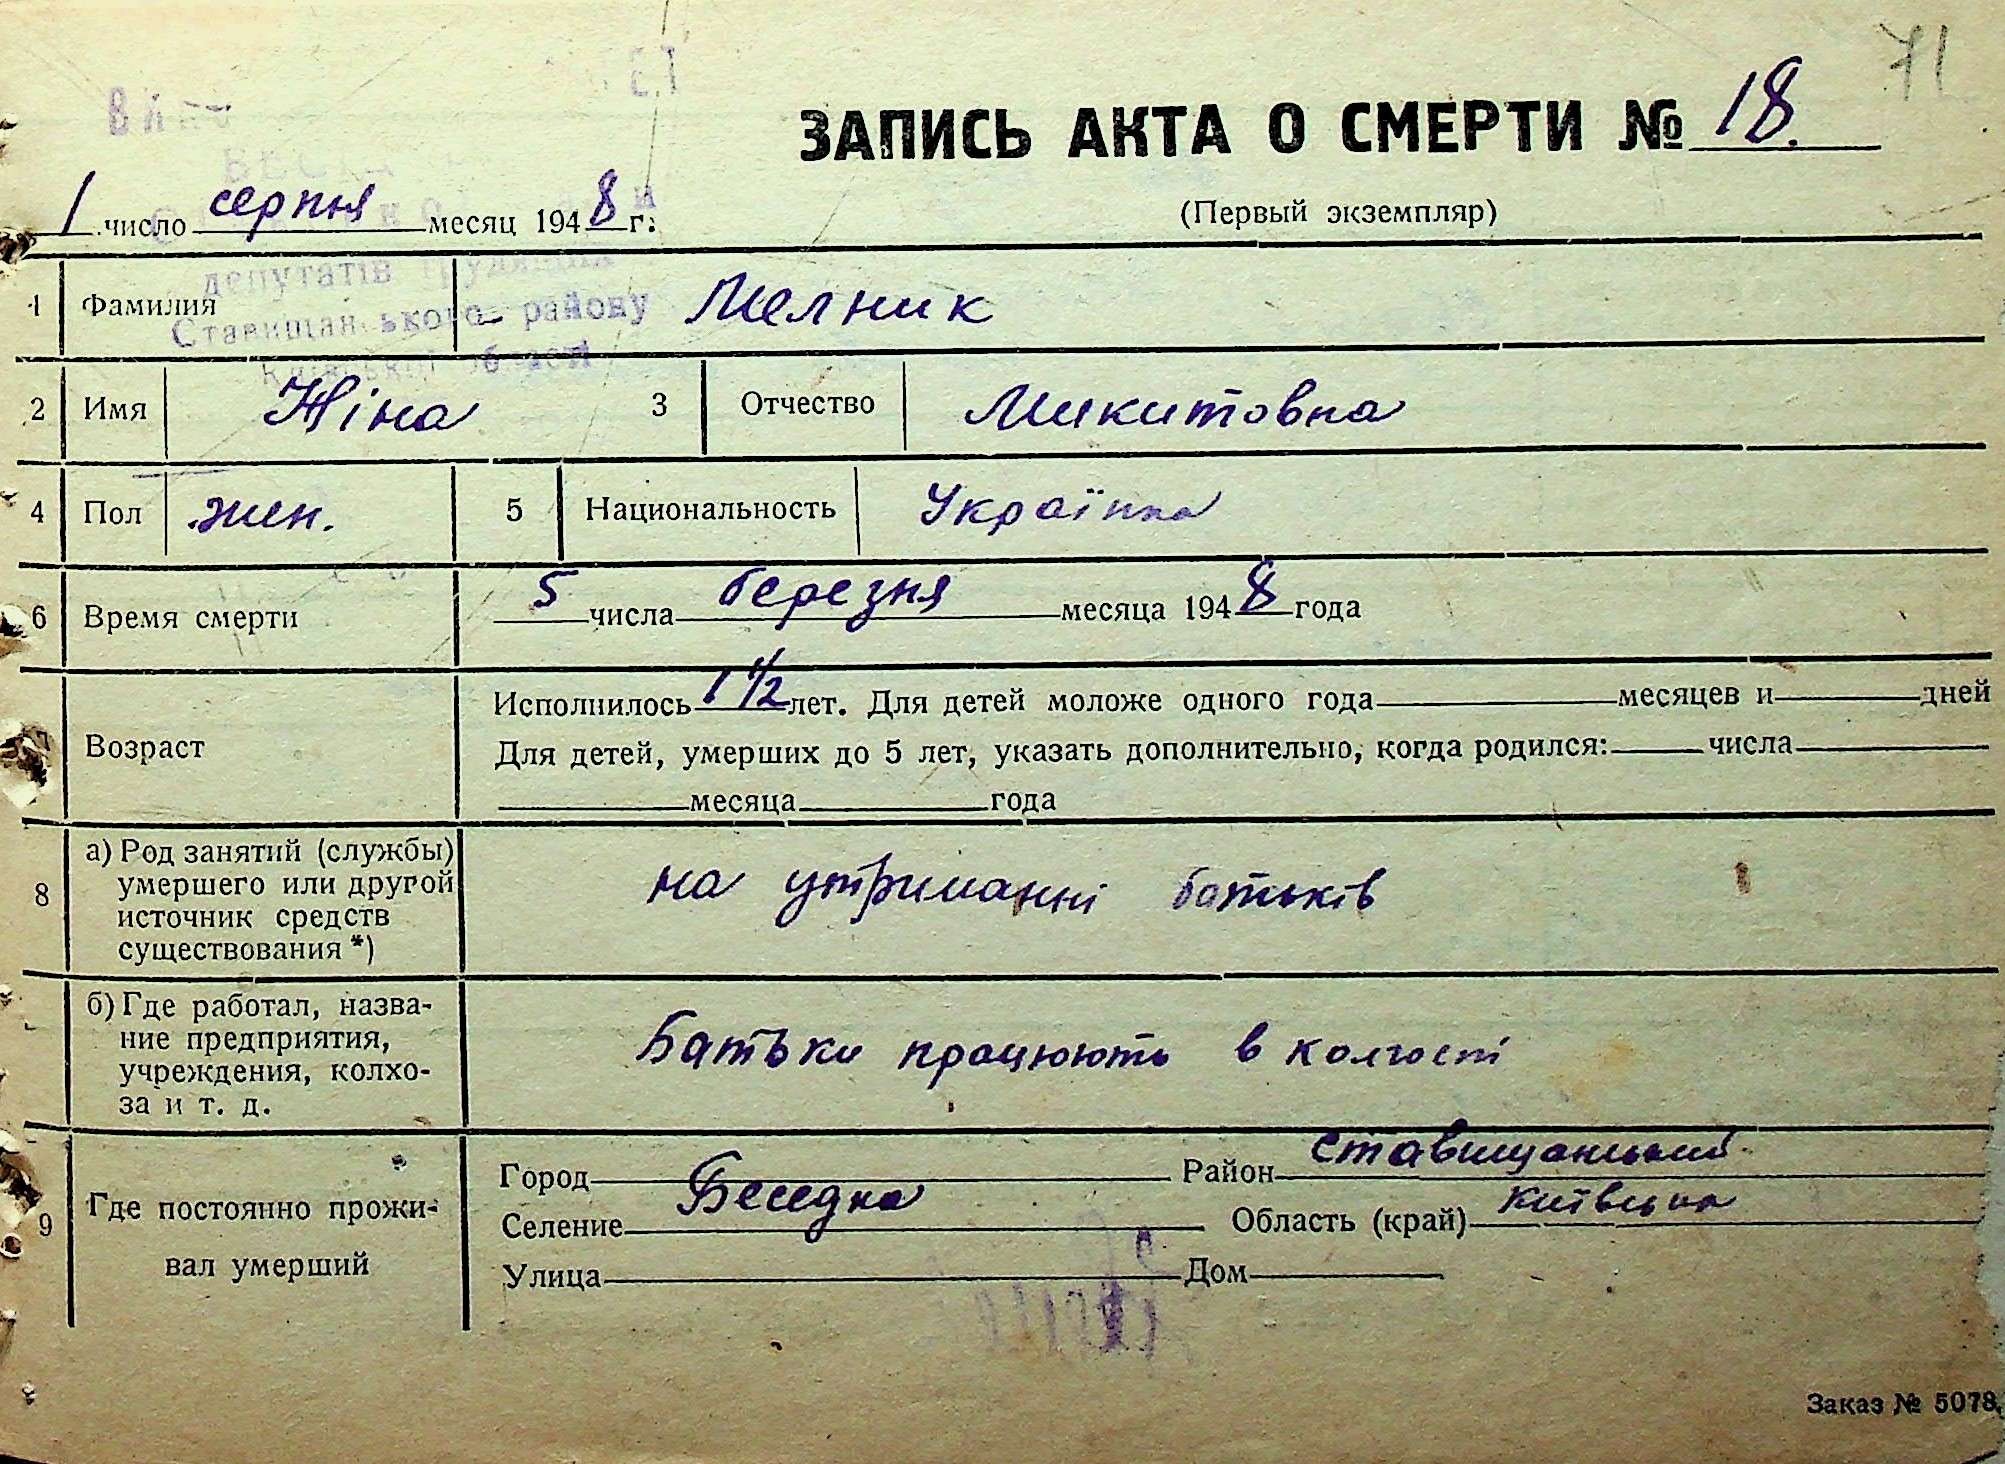 71
ЗАПИСЬ АКТА О СМЕРТИ № 18.
(Первый экземпляр)
1 число серпня месяц 1948 г.
депутатів трудящих
Ставищанського району
Київської області
1 Фамилия Мелник
2 Имя Ніна 3 Отчество Микитовна
4 Пол жен. 5 Национальность Українка
6 Время смерти 5 числа березня месяца 1948 года
7 Возраст
Исполнилось 1 1/2 лет. Для детей моложе одного года месяцев и дней
Для детей, умерших до 5 лет, указать дополнительно, когда родился: числа
месяца года
8 а) Род занятий (службы)
умершего или другой
источник средств
существования *)
на утриманні батьків
б) Где работал, назва-
ние предприятия,
учреждения, колхо-
за и т. д.
Батьки працюють в колгоспі
9 Где постоянно прожи-
вал умерший
Город Район Ставищанський
Селение Беседка Область (край) Київська
Улица Дом
Заказ № 5078.